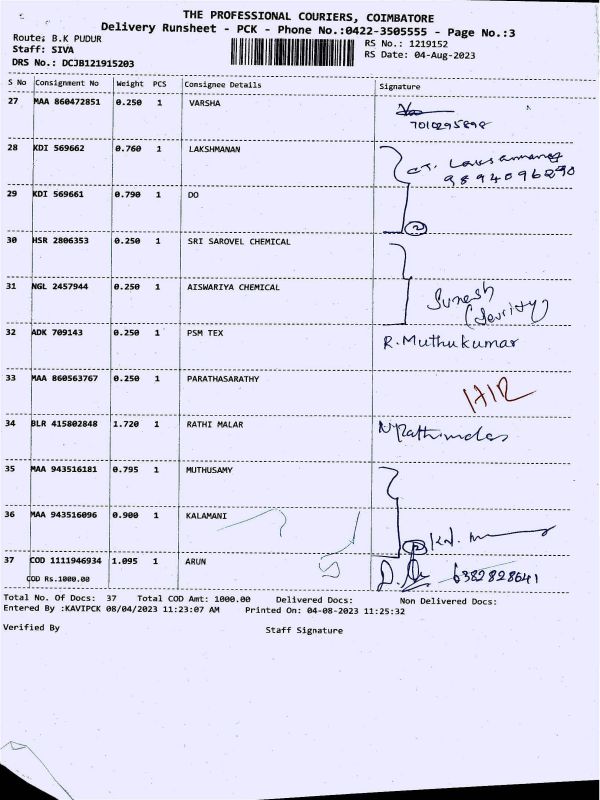 THE PROFESSIONAL COURIERS, COIMBATORE
Delivery Runsheet - PCK - Phone No.:0422-3505555 - Page No.:3
Route: B.K PUDUR
RS No.: 1219152
Staff: SIVA
RS Date: 04-Aug-2023
DRS No.: DCJB121915203
S No Consignment No Weight PCS Consignee Details Signature
27 MAA 860472851 0.250 1 VARSHA
7010295898
28 KDI 569662 0.760 1 LAKSHMANAN
9894096290
29 KDI 569661 0.790 1 DO
2
30 HSR 2806353 0.250 1 SRI SAROVEL CHEMICAL
31 NGL 2457944 0.250 1 AISWARIYA CHEMICAL
32 ADK 709143 0.250 1 PSM TEX R.Muthukumar
33 MAA 860563767 0.250 1 PARATHASARATHY
34 BLR 415802848 1.720 1 RATHI MALAR
35 MAA 943516181 0.795 1 MUTHUSAMY
36 MAA 943516096 0.900 1 KALAMANI
2
37 COD 1111946934 1.095 1 ARUN 6382828641
COD Rs.1000.00
Total No. Of Docs: 37 Total COD Amt: 1000.00 Delivered Docs: Non Delivered Docs:
Entered By :KAVIPCK 08/04/2023 11:23:07 AM Printed On: 04-08-2023 11:25:32
Verified By Staff Signature